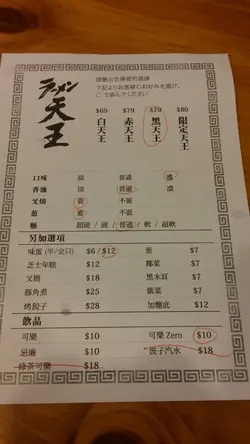 ラーメン
天王
請點出您喜愛的選擇
下記よりお客様のお好みを選び、
○で囲んでください
$69 $79 $79 $89
白天王 赤天王 黑天王 限定天王
口味 淡 普通 濃
香油 淡 普通 濃
叉燒 要 不要
蔥 要 不要
麵 超硬 / 硬 / 普通 / 軟 / 超軟
另加選項
味蛋 (半/全只) $6 / $12 蔥 $7
芝士年糕 $12 椰菜 $7
叉燒 $18 黑木耳 $7
豚角煮 $25 紫菜 $7
烤餃子 $28 加麵底 $12
飲品
可樂 $10 可樂 Zero $10
忌廉 $10 波子汽水 $18
綠茶可樂 $18